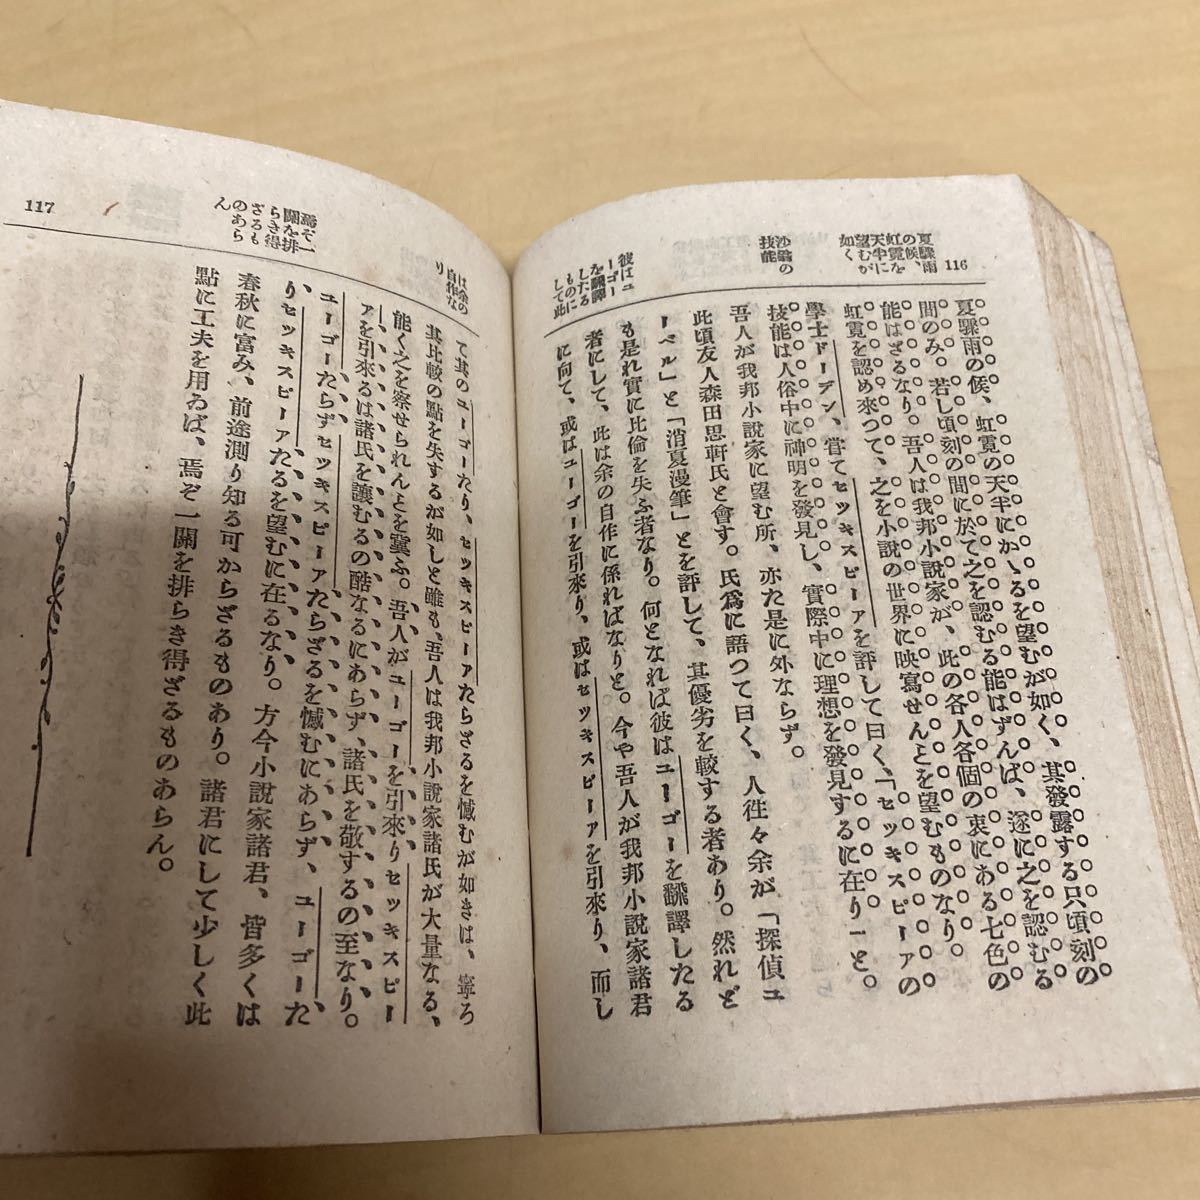 116
夏驟雨
の候、
虹霓を
天半に
望むが
如く
沙翁の
技能
彼はユ
ーゴー
を飜譯
したる
ものに
して此
夏驟雨の候、虹霓の天半にかゝるを望むが如く、其發露する只頃刻の
間のみ。若し頃刻の間に於て之を認むる能はずんば、遂に之を認むる
能はざるなり。吾人は我邦小説家が、此の各人各個の衷にある七色の
虹霓を認め來つて、之を小説の世界に映寫せんとを望むものなり。
學士ドーデン、甞てセッキスピーアを評して曰く、「セッキスピーアの
技能は人俗中に神明を發見し、實際中に理想を發見するに在り」と。
吾人が我邦小説家に望む所、亦た是に外ならず。
此頃友人森田思軒氏と會す。氏爲に語つて曰く、人往々余が「探偵ユ
ーベル」と「消夏漫筆」とを評して、其優劣を較する者あり。然れど
も是れ實に比倫を失ふ者なり。何となれば彼はユーゴーを飜譯したる
者にして、此は余の自作に係ればなりと。今や吾人が我邦小説家諸君
に向て、或はユーゴーを引來り、或はセッキスピーアを引來り、而し
117
は余の
自作な
り
焉ぞ一
關を排
らき得
ざるも
のあら
ん
て其のユーゴーたり、セッキスピーアたらざるを憾むが如きは、寧ろ
其比較の點を失するが如しと雖も、吾人は我邦小説家諸氏が大量なる、
能く之を察せられんとを冀ふ。吾人がユーゴーを引來りセッキスピー
アを引來るは諸氏を讓むるの酷なるにあらず、諸氏を敬するの至なり。
ユーゴーたらずセッキスピーアたらざるを憾むにあらず、ユーゴーた
りセッキスピーアたるを望むに在るなり。方今小説家諸君、皆多くは
春秋に富み、前途測り知る可からざるものあり。諸君にして少しく此
點に工夫を用ゐば、焉ぞ一關を排らき得ざるものあらん。